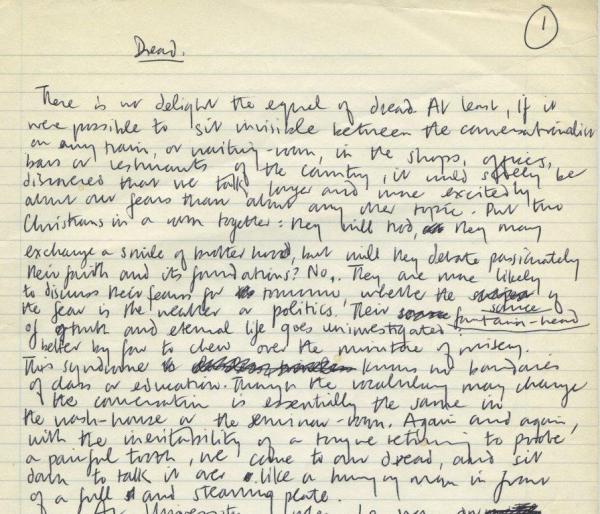 1
Dread.
There is no delight the equal of dread. At least, if it
were possible to sit invisible between the conversationalists
on any train, or waiting-room, in the shops, offices,
bars or restaurants of the country, it would surely be
discovered that we talk longer and more excitedly
about our fears than about any other topic. Put two
Christians in a room together: they will nod, they may
exchange a smile of brotherhood, but will they debate passionately
their faith and its foundations? No. They are more likely
to discuss their fears for tomorrow, whether the source of
the fear is the weather or politics. Their fountain-head
of truth and eternal life goes uninvestigated:
better by far to chew over the minutiae of misery.
This syndrome knows no boundaries
of class or education. Though the vocabulary may change
the conversation is essentially the same in
the wash-house or the seminar-room. Again and again,
with the inevitability of a tongue returning to probe
a painful tooth, we come to our dread, and sit
down to talk it over like a hungry man in front
of a full and steaming plate.
At University